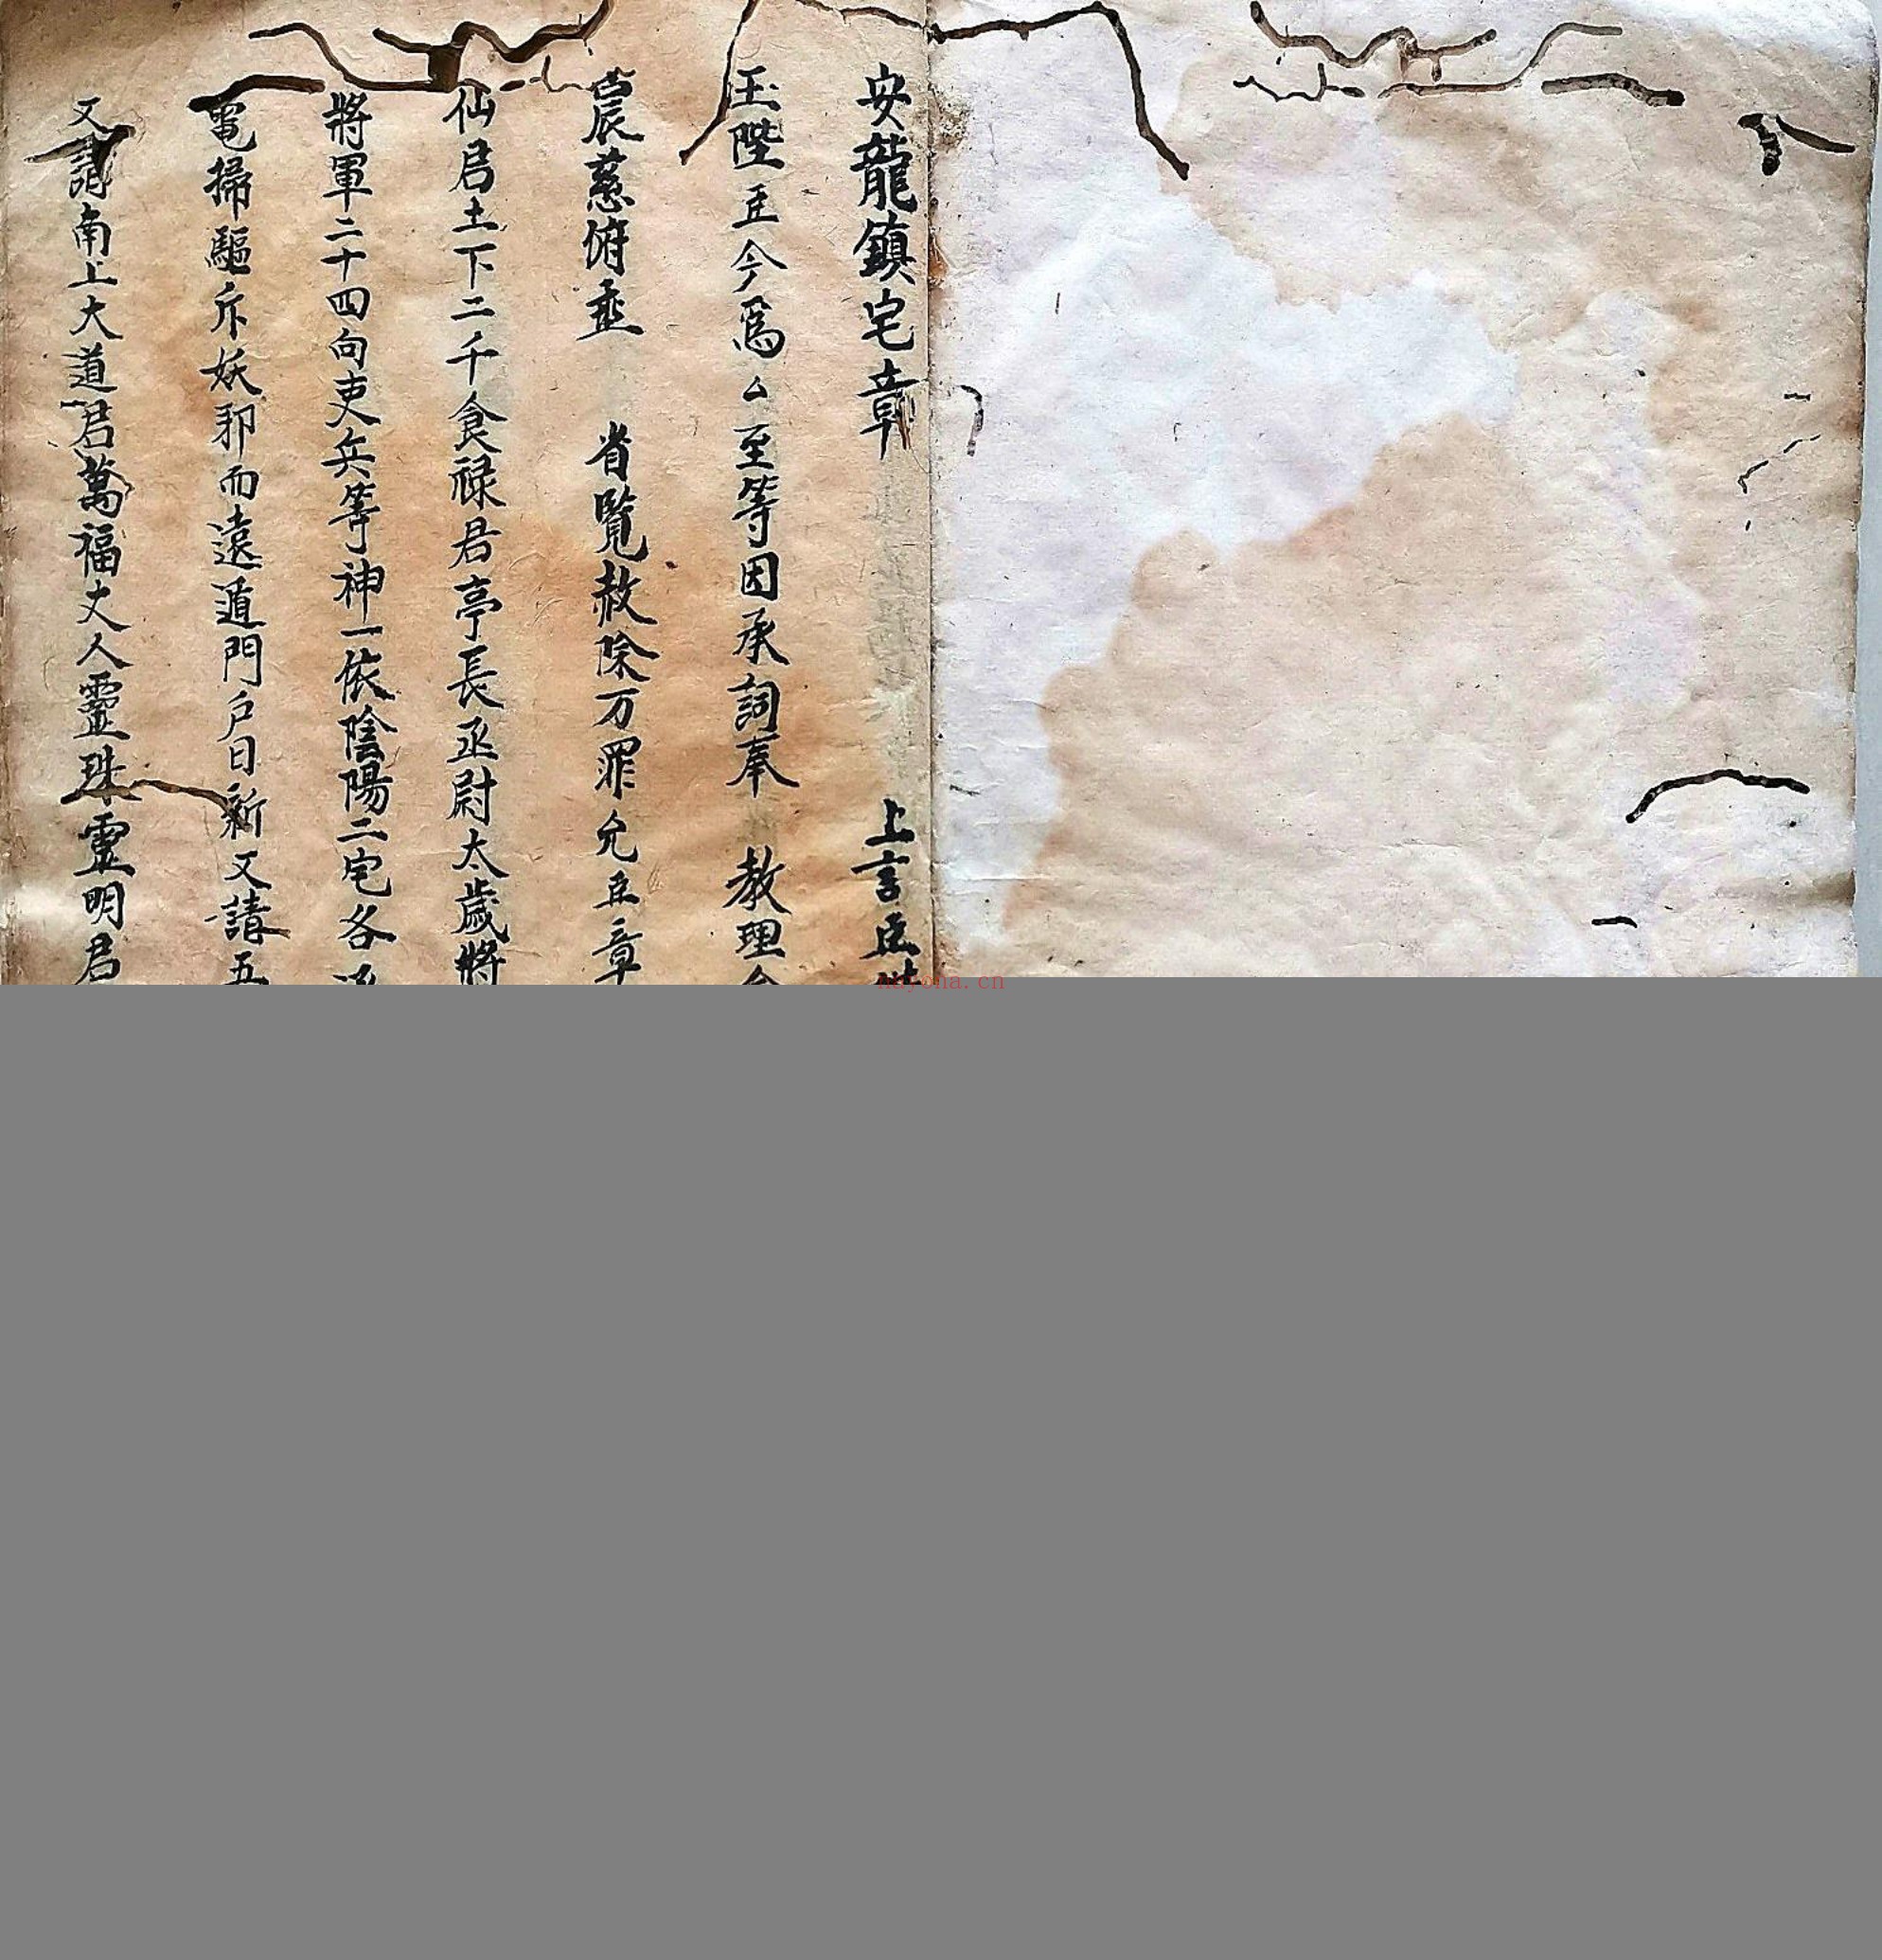 安龍鎮宅章 上言臣
玉陛臣今爲厶至等因承詞奉 教理
宸慈俯垂 省覧赦除万罪允臣章
仙君土下二千食禄君亭長丞尉太歲將
將軍二十四向吏兵等神一依陰陽二宅各
竈掃驅斥妖邪而遠遁門戶日新又請五
又請南上大道君萬福丈人靈珠靈明君
nayona.cn